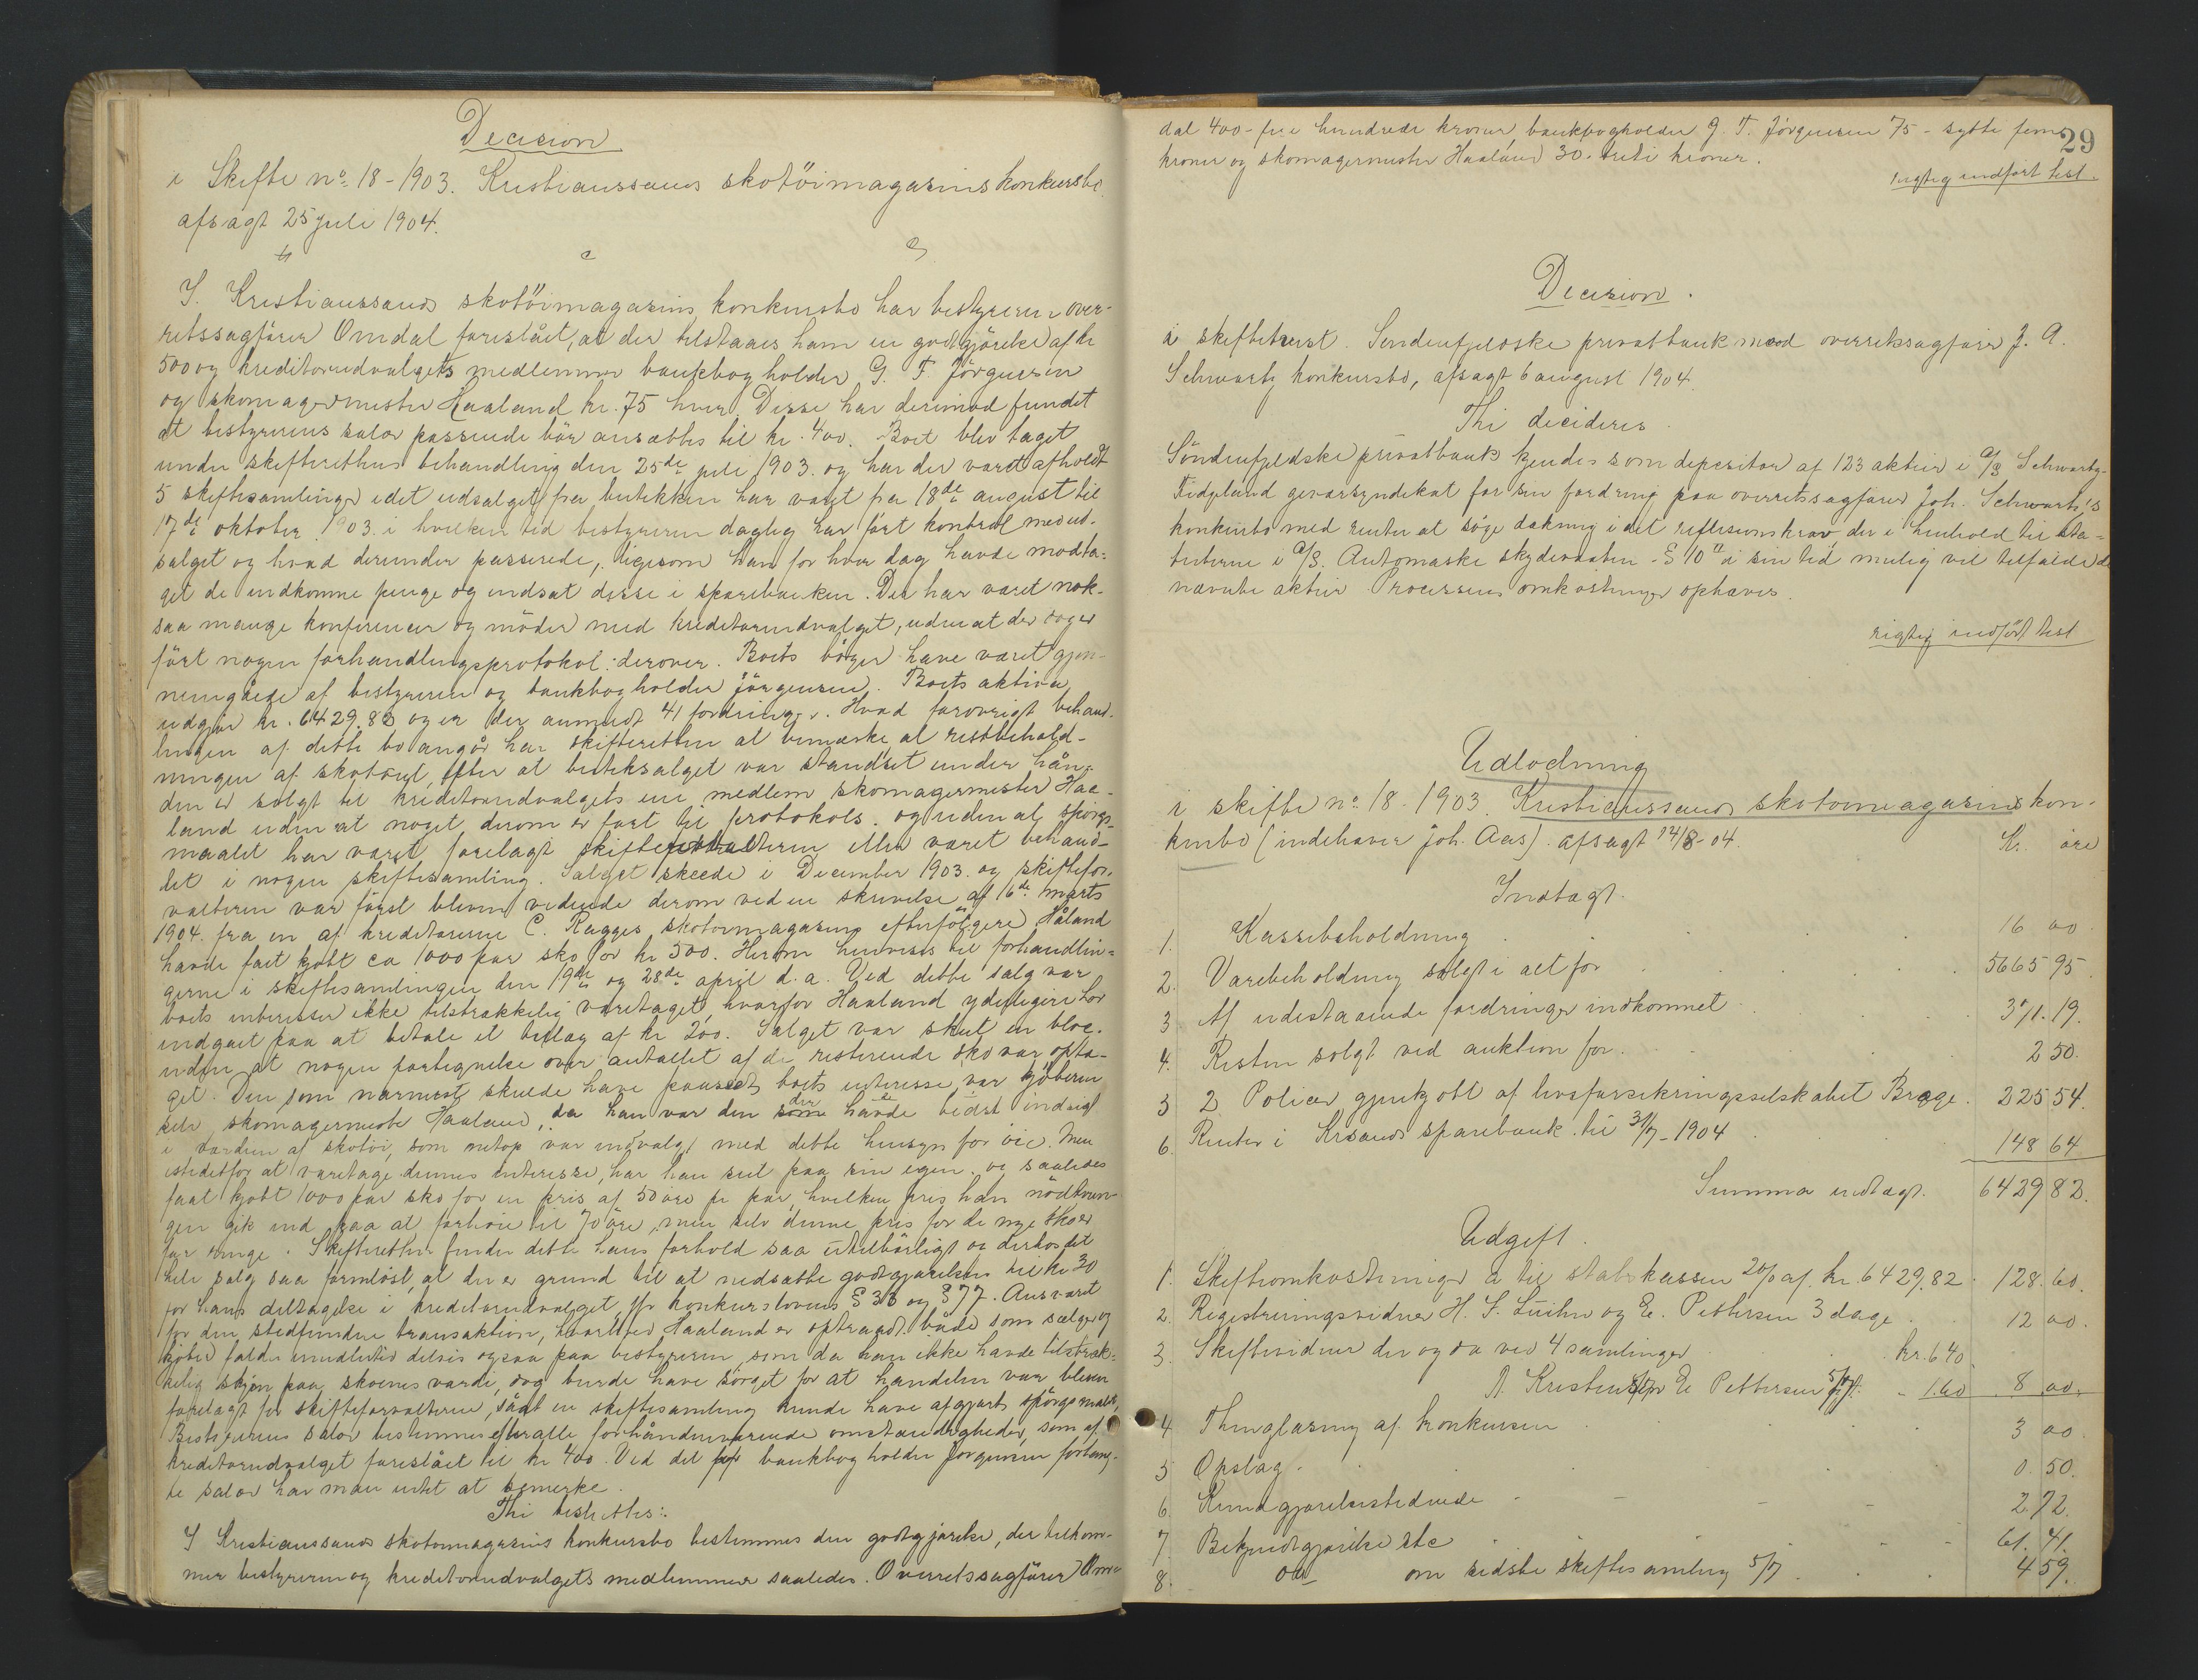 Decision
i Skifte no. 18-1903. Kristianssands skotöimagasins konkursbo
afsagt 25 juli 1904.
I Kristianssands skotöimagasins konkursbo har bestyreren over-
retssagförer Omdal foreslået, at der tilstaaes ham en godtgjörelse af kr
500 og kreditorudvalgets medlemmer bankbogholder G. F. Jörgensen
og skomagermester Haaland kr. 75 hver. Disse har derimod fundet
at bestyrerens salær passende bör ansættes til kr. 400. Boet blev taget
under skifterettens behandling den 25de juli 1903. og har der været afholdt
5 skiftesamlinger idet udsalget fra butikken har varet fra 18de august til
17de oktober 1903. i hvilken tid bestyreren daglig har fört kontrol med ud-
salget og hvad derunder passerede, ligesom han for hver dag havde modta-
get de indkomne penge og indsat disse i sparebanken. Der har været nok-
saa mange konferencer og möder med kreditorudvalget, uden at der dog er
fört nogen forhandlingsprotokol derover. Boets böger have været gjen-
nemgåede af bestyreren og bankbogholder Jörgensen. Boets aktiva
udgjör kr. 6429.82 og er der anmeldt 41 fordringer. Hvad forövrigt behand-
lingen af dette bo angår har skifteretten at bemærke at restbehold-
ningen af skotöiet, efter at butiksalget var standset under hån-
den er solgt til kreditorudvalgets ene medlem skomagermester Haa-
land uden at noget derom er fört til protokols. og uden at spörgs-
maalet har været forelagt skifteforvalteren eller været behand-
let i nogen skiftesamling. Salget skeede i December 1903. og skiftefor-
valteren var först bleven vidende derom ved en skrivelse af 16de marts
1904. fra en af kreditorerne C. Rugges skotöimagasins efterfölgere Håland
havde faat kjöbt ca 1000 par sko for kr 500. Herom henvises til forhandlin-
gerne i skiftesamlingen den 19de og 28de april d.a. Ved dette salg var
boets interesser ikke tilstrækkelig varetaget, hvorfor Haaland yderligere har
indgaaet paa at betale et tillæg af kr 200. Salget var skeet en bloc.
uden at nogen fortegnelse over antallet af de resterende sko var opta-
get. Den som nærmest skulde have paaseet boets interesse, var kjöberen
selv skomagermester Haaland, da han var den der havde bedst indsigt
i værdien af skotöi, som netop var indvalgt med dette hensyn for öie. Men
istedetfor at varetage dennes interesse, har han seet paa sin egen. og saaledes
faat kjöbt 1000 par sko for en pris af 50 öre pr par, hvilken pris han nödtvun-
gen gik ind paa at forhöie til 70 öre, men selv denne pris for de nye sko er
for ringe. Skifteretten finder dette hans forhold saa utilbörligt og derhos det
hele salg saa formlöst, at der er grund til at nedsætte godtgjörelsen til kr 30
for hans deltagelse i kreditorudvalget, jfr konkurslovens § 38 og § 77. Ansvaret
for den stedfundne transaktion, hvorved Haaland er optraadt både som sælger og
kjöber falder imidlertid delvis ogsaa paa bestyreren, som da han ikke havde tilstræk-
kelig skjön paa skoenes værdi, dog burde have sörget for at handelen var bleven
forelagt for skifteforvalteren, sådt en skiftesamling kunde have afgjort spörgsmålet,
Bestyrerens salær bestemmes efter alle forhåndenværende omstændigheder, som af
kreditorudvalget foreslået til kr 400. Ved det for bankbogholder Jörgensen forlang-
te salær har man intet at bemerke.
Thi besluttes:
I Kristianssands skotöimagasins konkursbo bestemmes den godtgjörelse, der tilkom-
mer bestyreren og kreditorudvalgets medlemmer saaledes. Overretssagförer Om-
29
dal 400 - fire hundrede kroner, bankbogholder G. F. Jörgensen 75 - sytti fem
kroner og skomagermester Haaland 30. treti kroner.
rigtig indfört test.
Decision.
i skiftetvist. Söndenfjeldske privatbank mod overretsagförer J. A.
Schwartz konkursbo, afsagt 6 august 1904.
Thi decideres.
Söndenfjeldske privatbank kjendes som depositar af 123 aktier i A/S Schwartz-
Fidjeland geværsyndikat for sin fordring paa overretssagförer Joh. Schwartz's
konkursbo med renter at söge dækning i det refusionskrav, der i henhold til sta-
tuterne i A/S. Automatiske skydevaaben - § 10 i sin tid mulig vil tilfalde de
nævnte aktier. Processens omkostninger ophæves.
rigtig indfört test
Udlodning
i skifte no. 18 - 1903. Kristianssands skotöimagasins kon-
kursbo (indehaver Joh. Aas). afsagt 12/8-04.
Kr. öre
Indtægt.
1. Kassebeholdning 16 00.
2. Varebeholdning solgt i alt for 5665 95.
3 Af udestaaende fordringer indkommet 371.19.
4. Resten solgt ved auktion for. 2 50.
5 2 Policer gjenkjöbt af livsforsikringsselskabet Brage. 225 54.
6. Renter i Krsands sparebank til 31/7-1904 148 64
Summa indtægt. 6429 82.
Udgift.
1. Skifteomkostninger a til statskassen 2% af. kr. 6429,82. 128.60.
2. Registreringsvidner H. S. Luihn og E. Pettersen 3 dage 12 00.
3. Skiftevidner der og da ved 4 samlinger kr. 6 40
A. Kristensen E Pettersen 5/7 - 1.60 8 00.
4 Thinglæsning af konkursen 3 00.
5 Opslag. 0. 50.
6. Kundgjörelsestidende 2.72.
7. Bekjendtgjörelse etc 61. 41.
8. do om sidste skiftesamling 5/7 4 59.